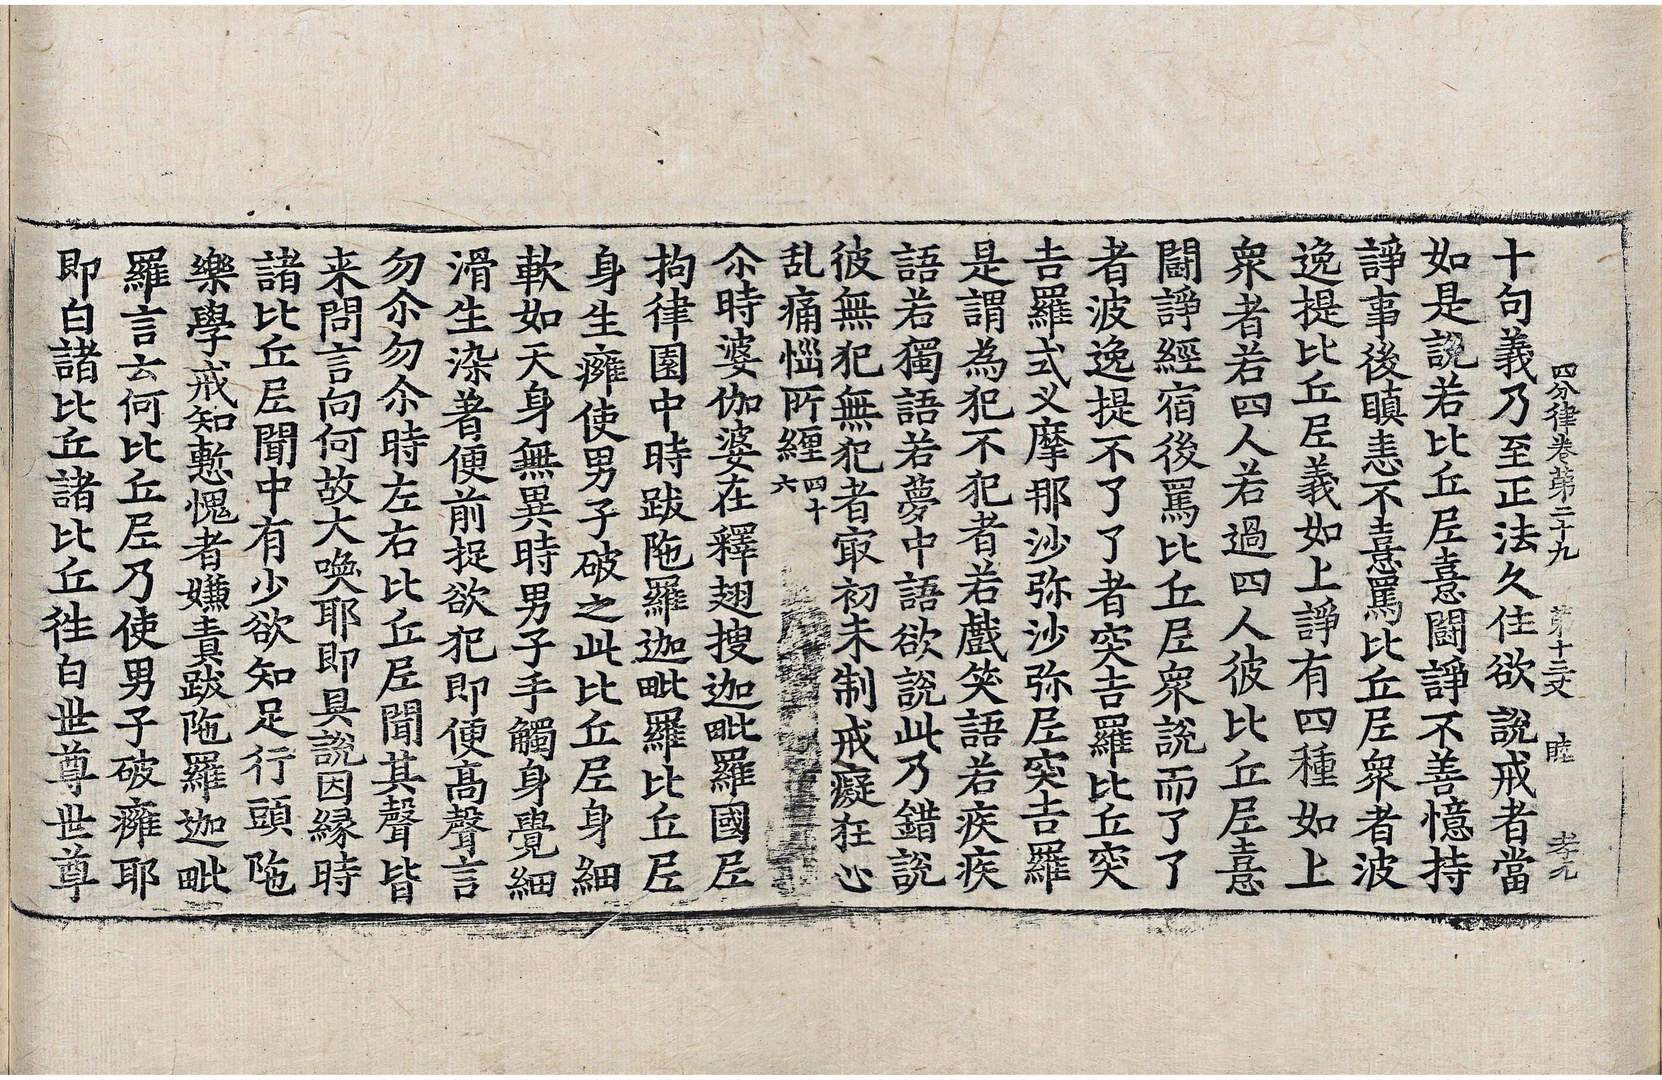 四分律卷第二十九　第十三丈　睦　孝九
十句義乃至正法久住欲說戒者當
如是說若比丘尼憙鬪諍不善憶持
諍事後瞋恚不憙罵比丘尼衆者波
逸提比丘尼義如上諍有四種如上
衆者若四人若過四人彼比丘尼憙
鬪諍經宿後罵比丘尼衆說而了了
者波逸提不了了者突吉羅比丘突
吉羅式叉摩那沙弥沙弥尼突吉羅
是謂為犯不犯者若戲笑語若疾疾
語若獨語若夢中語欲說此乃錯說
彼無犯無犯者㝡初未制戒癡狂心
乱痛惱所纏四十六
尒時婆伽婆在釋翅搜迦毗羅國尼
拘律園中時跋陁羅迦毗羅比丘尼
身生癰使男子破之此比丘尼身細
軟如天身無異時男子手觸身覺細
滑生染著便前捉欲犯即便高聲言
勿尒勿尒時左右比丘尼聞其聲皆
来問言向何故大喚耶即具說因緣時
諸比丘尼聞中有少欲知足行頭陁
樂學戒知慙愧者嫌責跋陁羅迦毗
羅言云何比丘尼乃使男子破癰耶
即白諸比丘諸比丘徃白世尊世尊